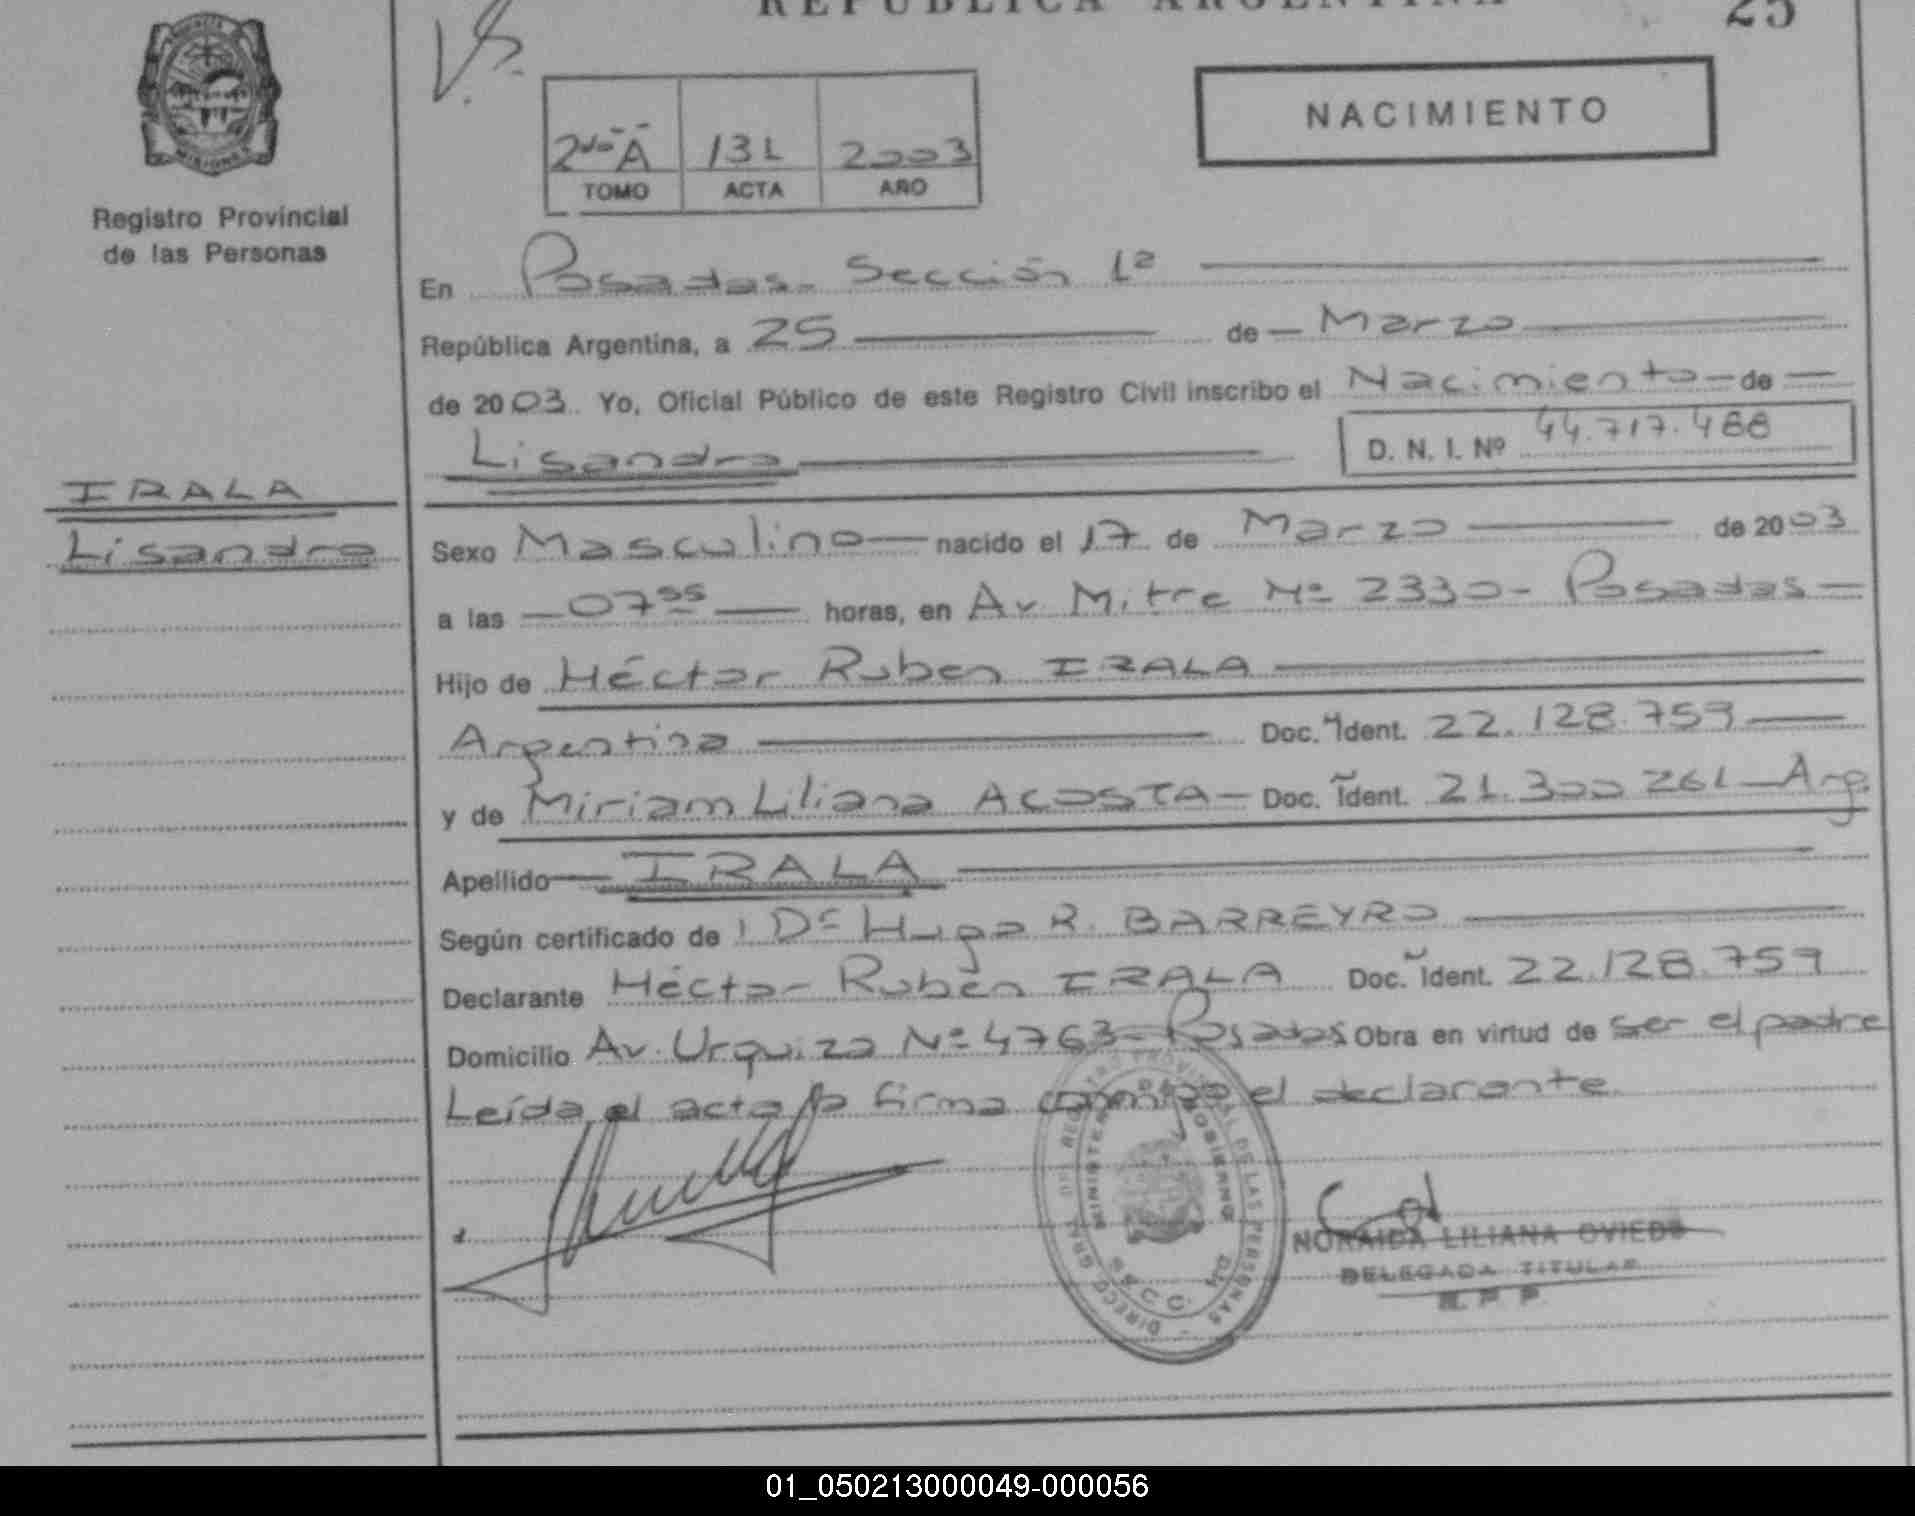 REPUBLICA ARGENTINA
25
NACIMIENTO
2do A 131 2003
TOMO ACTA AÑO
MISIONES
Registro Provincial
de las Personas
En Posadas- Sección 1ª
República Argentina, a 25 de Marzo
de 2003. Yo, Oficial Público de este Registro Civil inscribo el Nacimiento de
Lisandro
D. N. I. Nº 44.717.488
IRALA
Lisandro
Sexo Masculino nacido el 17 de Marzo de 2003
a las 07 55 horas, en Av. Mitre Nº 2330- Posadas
Hijo de Héctor Ruben IRALA
Argentina Doc. Ident. 22.128.759
y de Miriam Liliana ACOSTA Doc. Ident. 21.300 261 Arg.
Apellido IRALA
Según certificado de Dr Hugo R. BARREYRO
Declarante Héctor Rubén IRALA Doc. Ident. 22.128.759
Domicilio Av. Urquiza Nº 4763- Posadas Obra en virtud de ser el padre
Leída el acta la firma conmigo el declarante.
DIRECC. GRAL. DEL REGISTRO PROVINCIAL DE LAS PERSONAS
MINISTERIO DE GOBIERNO
NORAIDA LILIANA OVIEDO
DELEGADA TITULAR
R. P. P.
01_050213000049-000056